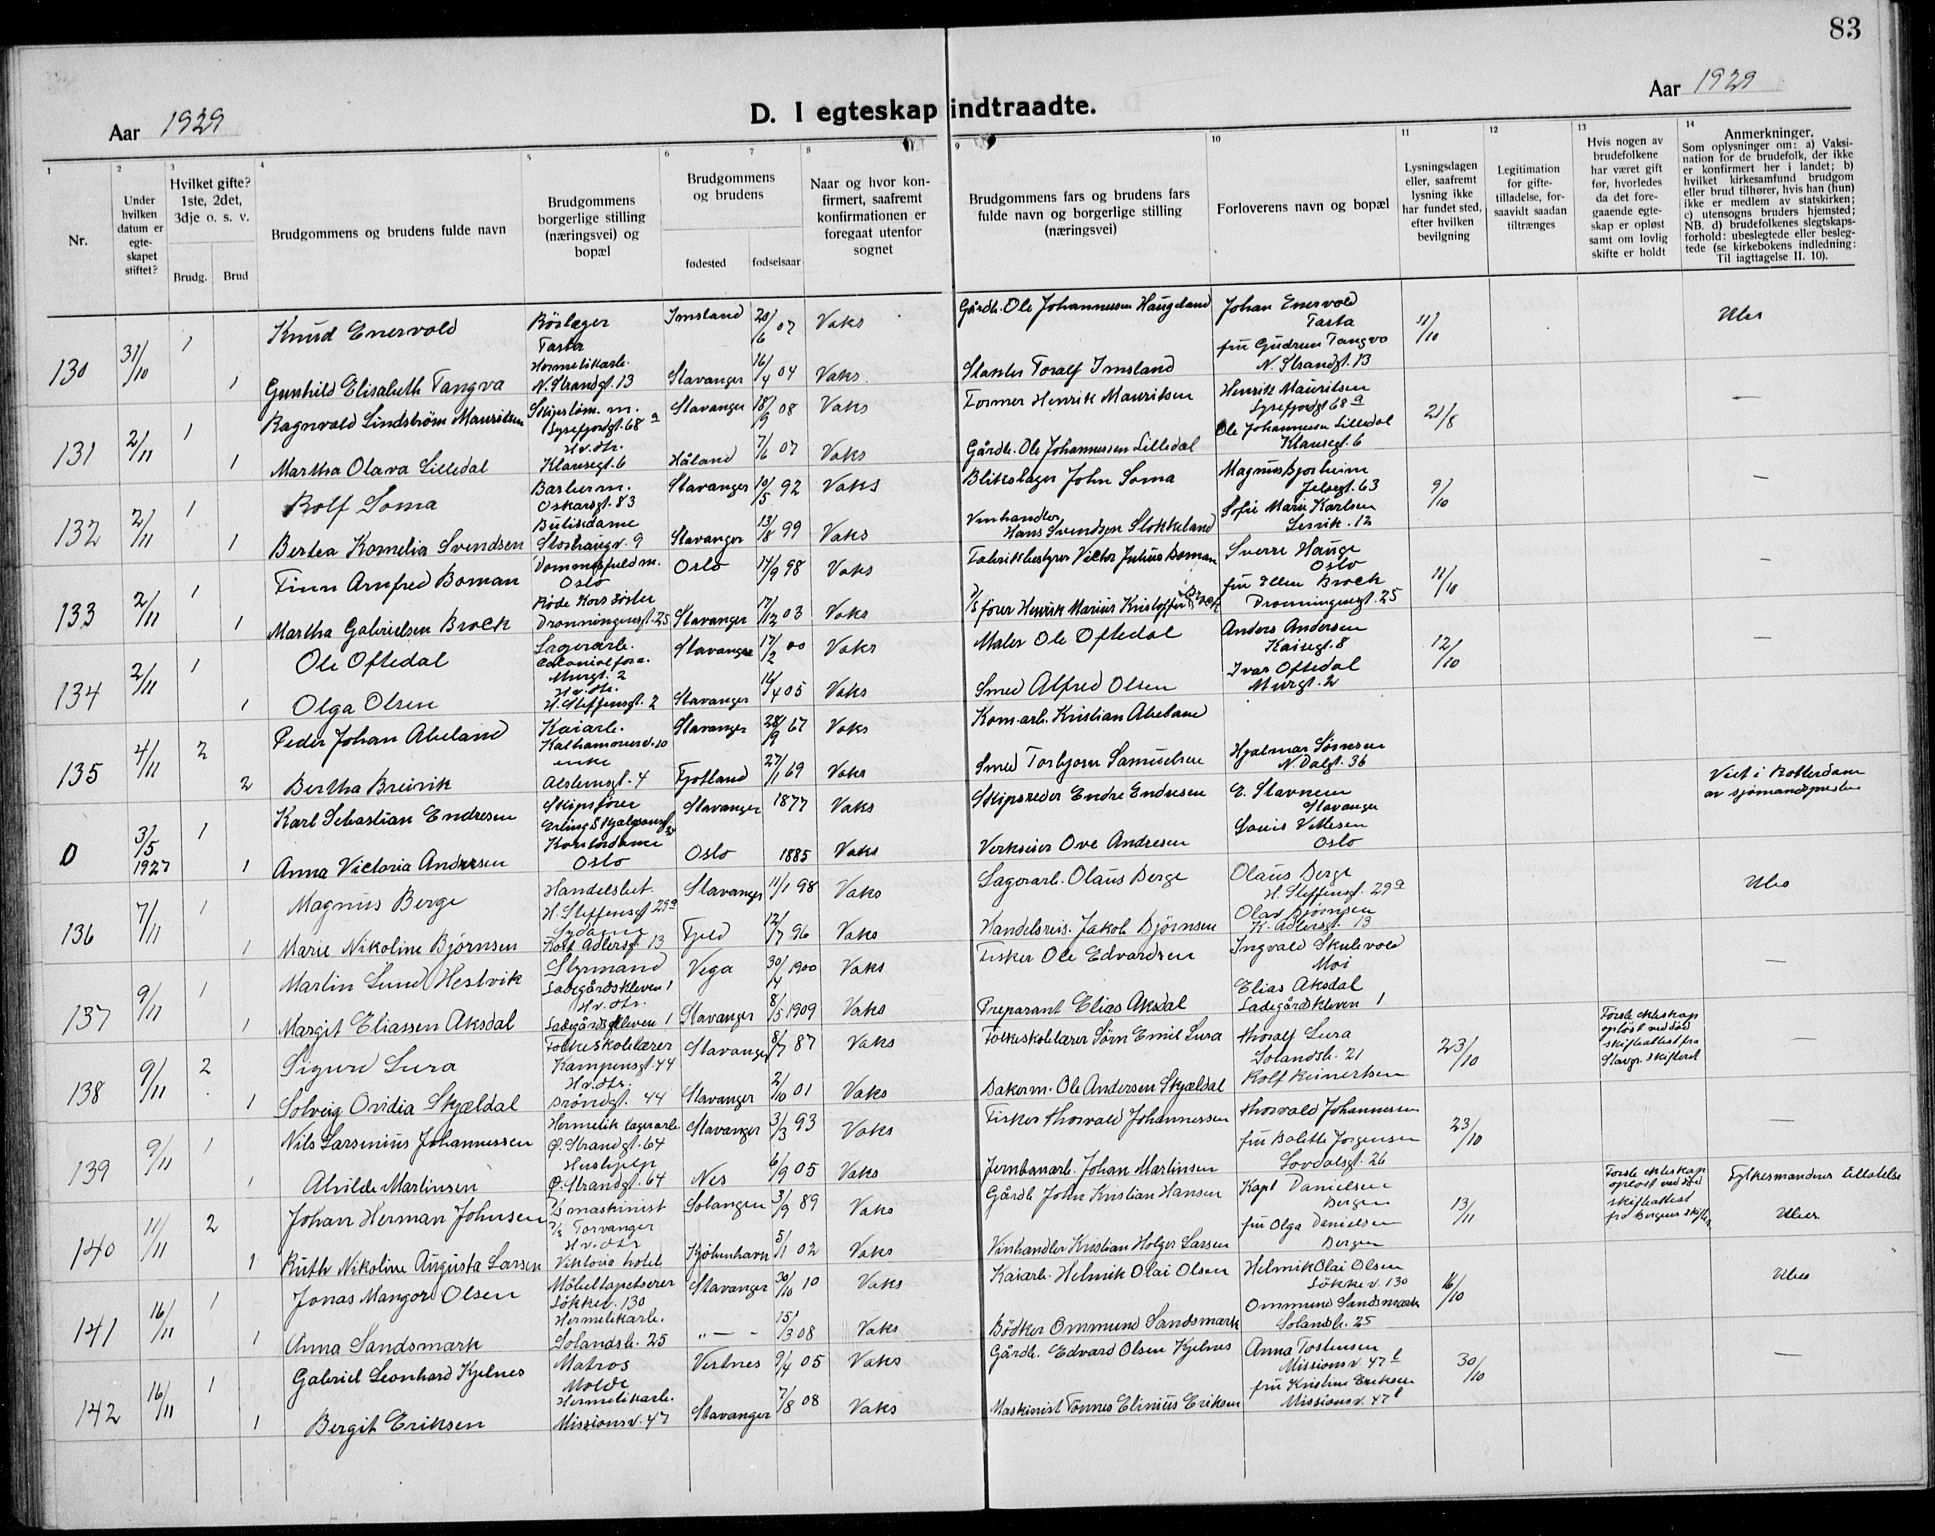 83
Aar 1929
D. I egteskap indtraadte.
Aar 1929
1 2 3 4 5 6 7 8 9 10 11 12 13 14
Nr.
Under hvilken datum er egte-skapet stiftet?
Hvilket gifte? 1ste, 2det, 3dje o. s. v.
Brudg. Brud
Brudgommens og brudens fulde navn
Brudgommens borgerlige stilling (næringsvei) og bopæl
Brudgommens og brudens
fødested fødselsaar
Naar og hvor kon-firmert, saafremt konfirmationen er foregaat utenfor sognet
Brudgommens fars og brudens fars fulde navn og borgerlige stilling (næringsvei)
Forloverens navn og bopæl
Lysningsdagen eller, saafremt lysning ikke har fundet sted, efter hvilken bevilgning
Legitimation for gifte-tilladelse, for-saavidt saadan tiltrænges
Hvis nogen av brudefolkene har været gift før, hvorledes da det fore-gaaende egte-skap er opløst samt om lovlig skifte er holdt
Anmerkninger.
Som oplysninger om: a) Vaksi-nation for de brudefolk, der ikke er konfirmert her i landet; b) hvilket kirkesamfund brudgom eller brud tilhører, hvis han (hun) ikke er medlem av statskirken; c) utensogns bruders hjemsted; NB. d) brudefolkenes slegtskaps-forhold: ubeslegtede eller besleg-tede (se kirkebokens indledning: Til iagttagelse II. 10).
130 31/10 1 Knud Enervold Tasta Imsland 20/6 07 Vaks Gårdb. Ole Johannessen Haugeland Johan Enervold Tasta 11/10
1 Gunhild Elisabeth Tangva Hermetikarb. N. Strandgt. 13 Stavanger 16/4 04 Vaks Toralf Imsland fru Gudrun Tangva N. Strandgt. 13
131 2/11 1 Ragnvald Lindstrøm Mauritsen Lysefjordgt. 68 a Stavanger 18/9 08 Vaks Former Henrik Mauritsen Henrik Mauritsen Lysefjordgt 68 a 21/8 —
1 Martha Olava Lilledal Hv. dtr. Klausegt. 6 Håland 7/6 07 Vaks Gårdb. Ole Johannessen Lilledal Ole Johannessen Lilledal Klausegt. 6
132 2/11 1 Rolf Soma Barberm. Oskarsgt. 83 Stavanger 10/5 92 Vaks Blikslager John Soma Magnus Bjorheim Jelsegt. 63 9/10 —
1 Bertea Kornelia Svendsen Butikdame 9 Stavanger 13/8 99 Vaks Vinhandler Hans Svendsen Stokkeland Sofie Marie Karlsen 12
133 2/11 1 Finn Arnfred Boman Dommerfuldm. Oslo Oslo 17/9 98 Vaks Fabrikbestyrer Victor Julius Boman Sverre Hauge Oslo 11/10 —
1 Martha Gabrielsen Brock Røde Kors søster Dronningensgt. 25 Stavanger 17/12 03 Vaks D/s fører Henrik Marius Kristoffer Brock fru Ellen Brock Dronningensgt. 25
134 2/11 1 Ole Oftedal Lagerarb. Colonialforr. Murgt. 2 Stavanger 17/2 00 Vaks Maler Ole Oftedal Anders Andersen Kaisegt. 8 12/10 —
1 Olga Olsen Hv. dtr. H. Steffensgt. 2 Stavanger 14/4 05 Vaks Smed Alfred Olsen Ivar Oftedal Murgt. 2
135 4/11 2 Peder Johan Abeland Kaiarb. Stavanger 28/9 67 Vaks Kom.arb. Kristian Abeland
2 Bertha Breivik enke 4 Fjotland 27/1 69 Vaks Smed Torbjørn Samuelsen Hjalmar Sørnsen N. Dalgt. 36
0 3/5 1927 1 Karl Sebastian Endresen Skipsfører Erling Skjalgsonsgt Stavanger 1877 Vaks Skipsreder Endre Endresen E. Stavnem Stavanger Viet i Rotterdam av sjømandspresten
1 Anna Victoria Andresen Kontordame Oslo Oslo 1885 Vaks Verkseier Ove Andresen Louis Vettesen Oslo
136 7/11 1 Magnus Berge Handelsbet. H. Steffensgt 29 a Stavanger 11/1 98 Vaks Lagerarb. Olaus Berge Olaus Berge H. Steffensgt. 29 a
1 Marie Nikoline Bjørnsen Sydame Kort Adlersgt. 13 Fjeld 12/7 96 Vaks Handelsreis. Jakob Bjørnsen Olav Bjørnsen K. Adlersgt. 13
137 9/11 1 Martin Lund Hestvik Styrmand Ladegårdskleven 1 Vega 30/4 1900 Vaks Fisker Ole Edvardsen Ingvald Skulevold Moi —
1 Margit Eliassen Aksdal Hv. dtr. Ladegårdskleven 1 Stavanger 8/5 1909 Vaks Preparant Elias Aksdal Elias Aksdal Ladegårdskleven 1
138 9/11 2 Sigurd Lura Folkeskolelærer Kampensgt. 44 Stavanger 8/7 87 Vaks Folkeskolelærer Sørn Emil Lura Thoralf Lura Solandsb. 21 23/10 Første ekteskap opløst ved død skifteattest fra Stavgr. skifteret —
1 Solveig Ovidia Skjældal Hv. dtr. Brøndgt. 44 Stavanger 2/10 01 Vaks Bakerm. Ole Andersen Skjældal Rolf Reinertsen
139 9/11 1 Nils Larsenius Johannessen Hermetik lagerarb. Ø. Strandgt. 64 Stavanger 3/3 93 Vaks Fisker Thorvald Johannessen Thorvald Johannessen 23/10 —
1 Alvilde Martinsen Hushjelp Ø. Strandgt. 64 Nes 6/9 05 Vaks Jernbanarb. Johan Martinsen fru Bolette Jørgensen Lovdalsgt. 26
140 11/11 2 Johan Herman Johnsen D/s maskinist D/s Torvanger Solangen 3/9 89 Vaks Gårdb John Kristian Hansen Kapt Danielsen Bergen 13/11 Første ekteskap opløst ved død skifteattest fra Bergens skifter. Fylkesmandens tillatelse
1 Ruth Nikoline Augusta Larsen Hv. dtr Viktoria hotel Kjøbenhavn 5/1 02 Vaks Vinhandler Kristian Holger Larsen fru Olga Danielsen Bergen
141 16/11 1 Jonas Mangor Olsen Møbeltapetserer Løkkev. 130 Stavanger 30/10 10 Vaks Kaiarb. Helmik Olai Olsen Helmik Olai Olsen Løkkev. 130 16/10
1 Anna Sandsmark Hermetikarb. Solandsb. 25 " — " 15/3 08 Vaks Bødker Ommund Sandsmark Ommund Sandsmark Solandsb. 25
142 16/11 1 Gabriel Leonhard Kjelnes Matros Molde Vestnes 9/4 05 Vaks Gårdb. Edvard Olsen Kjelnes Anna Tostensen Missionsv. 47 b 30/10 —
1 Bergit Eriksen Hermetikarb. Missionsv. 47 Stavanger 7/8 08 Vaks Maskinist Tønnes Elinius Eriksen fru Kristine Eriksen Missionsv. 47 b